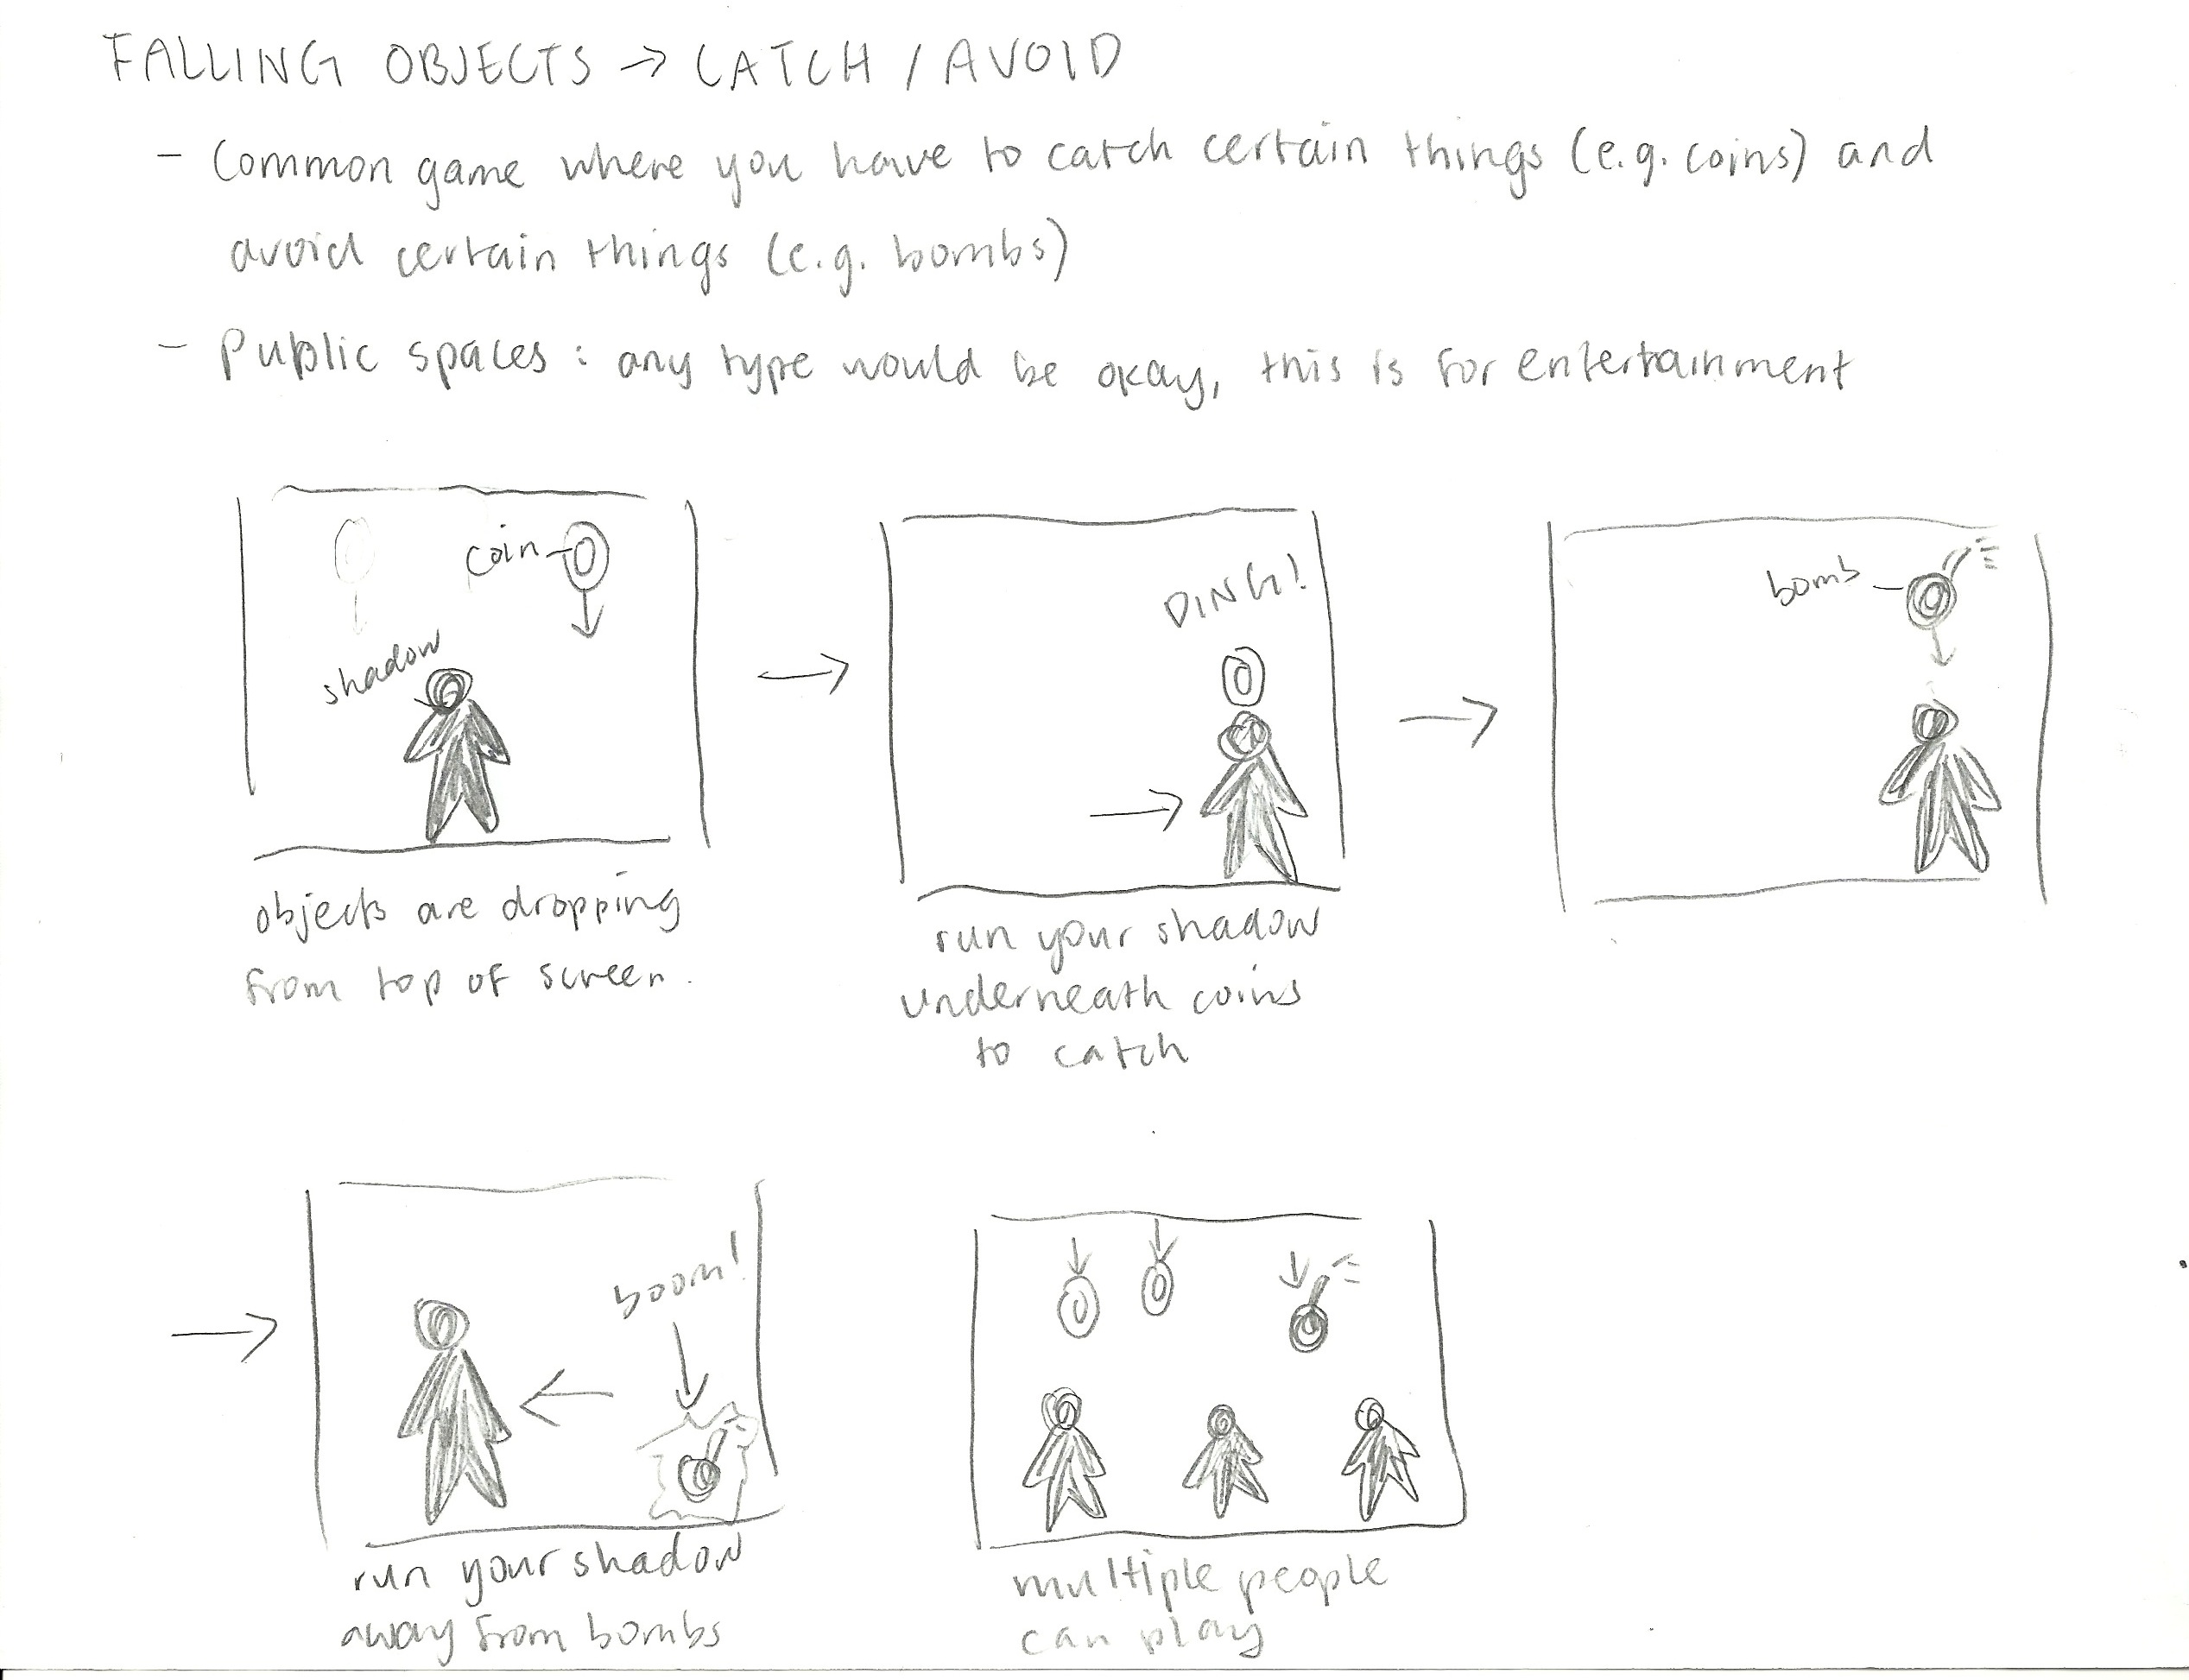 FALLING OBJECTS → CATCH / AVOID
- Common game where you have to catch certain things (e.g. coins) and
avoid certain things (e.g. bombs)
- Public spaces : any type would be okay, this is for entertainment
coin
shadow
objects are dropping
from top of screen.
DING!
run your shadow
underneath coins
to catch
bomb
boom!
run your shadow
away from bombs
multiple people
can play